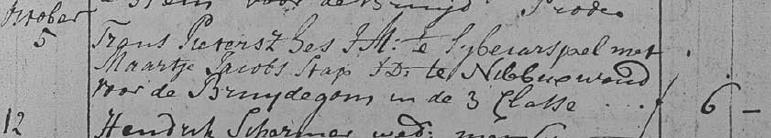 October
5 Frans Pietersz Bes J:M: te Sybecarspel met
Maartje Jacobs Stap J:D: te Nibbixwoud
voor de Bruydegom in de 3 Classe . . . f 6 –
12 Hendrik Schermer wed: